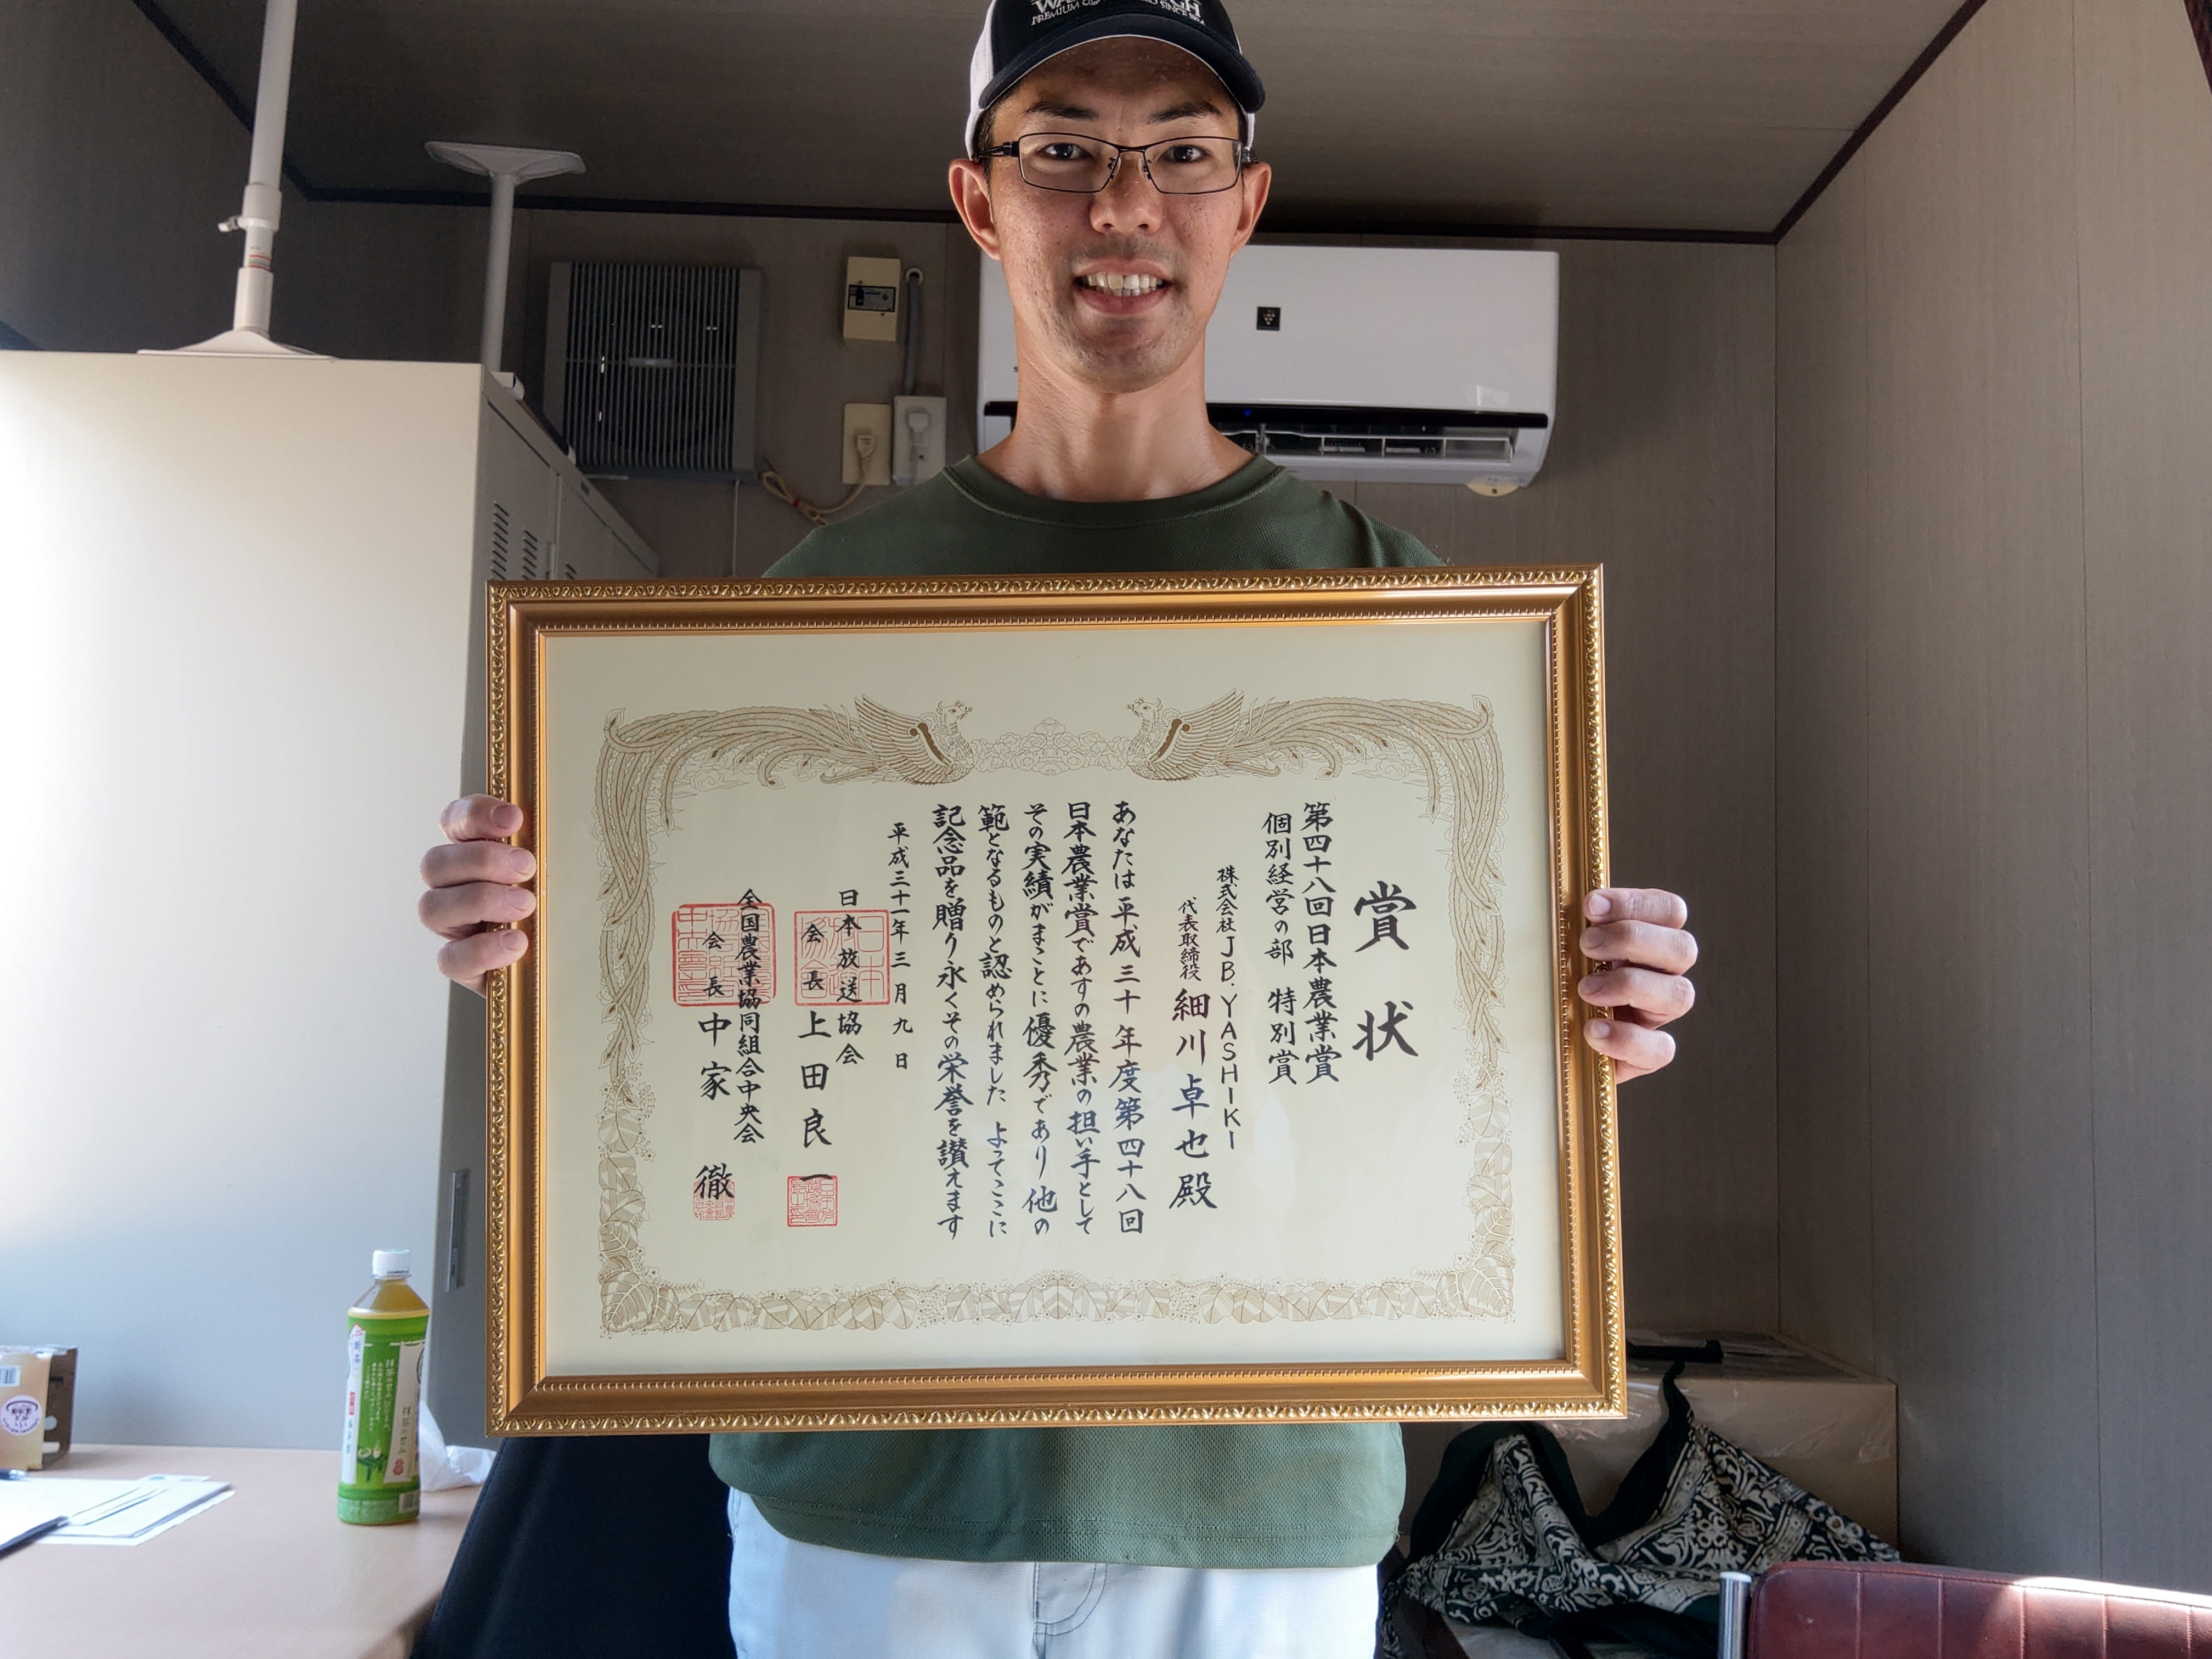 賞状
第四十八回日本農業賞
個別経営の部 特別賞
株式会社JB.YASHIKI
代表取締役 細川卓也殿
あなたは平成三十年度第四十八回
日本農業賞であすの農業の担い手として
その実績がまことに優秀であり他の
範となるものと認められました よってここに
記念品を贈り永くその栄誉を讃えます
平成三十一年三月九日
日本放送協会
会長 上田良一
全国農業協同組合中央会
会長 中家徹
PREMIUM
SINCE
新茶